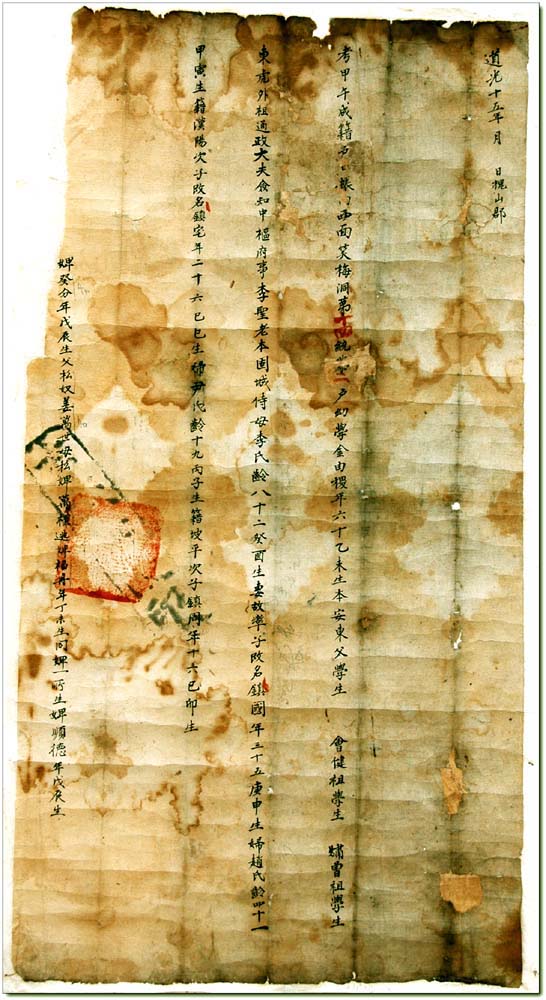 道光十五年 月 日槐山郡
考甲午成籍 西面笑梅洞第十四統 戶幼學金由稷年六十乙未生本安東父學生 會健祖學生 䎘曾祖學生
東虎外祖通政大夫僉知中樞府事李聖老本固城侍母李氏齡八十二癸酉生妻故率子改名鎮國年三十五庚申生婦趙氏齡四十一
甲寅生籍漢陽次子改名鎮宅年二十六己巳生婦尹氏齡十九丙子生籍坡平次子鎮 年十六己卯生
婢癸分年戊辰生父私奴善萬世母私婢 婢 丹年丁未生同婢一所生婢順德年戊辰生
印